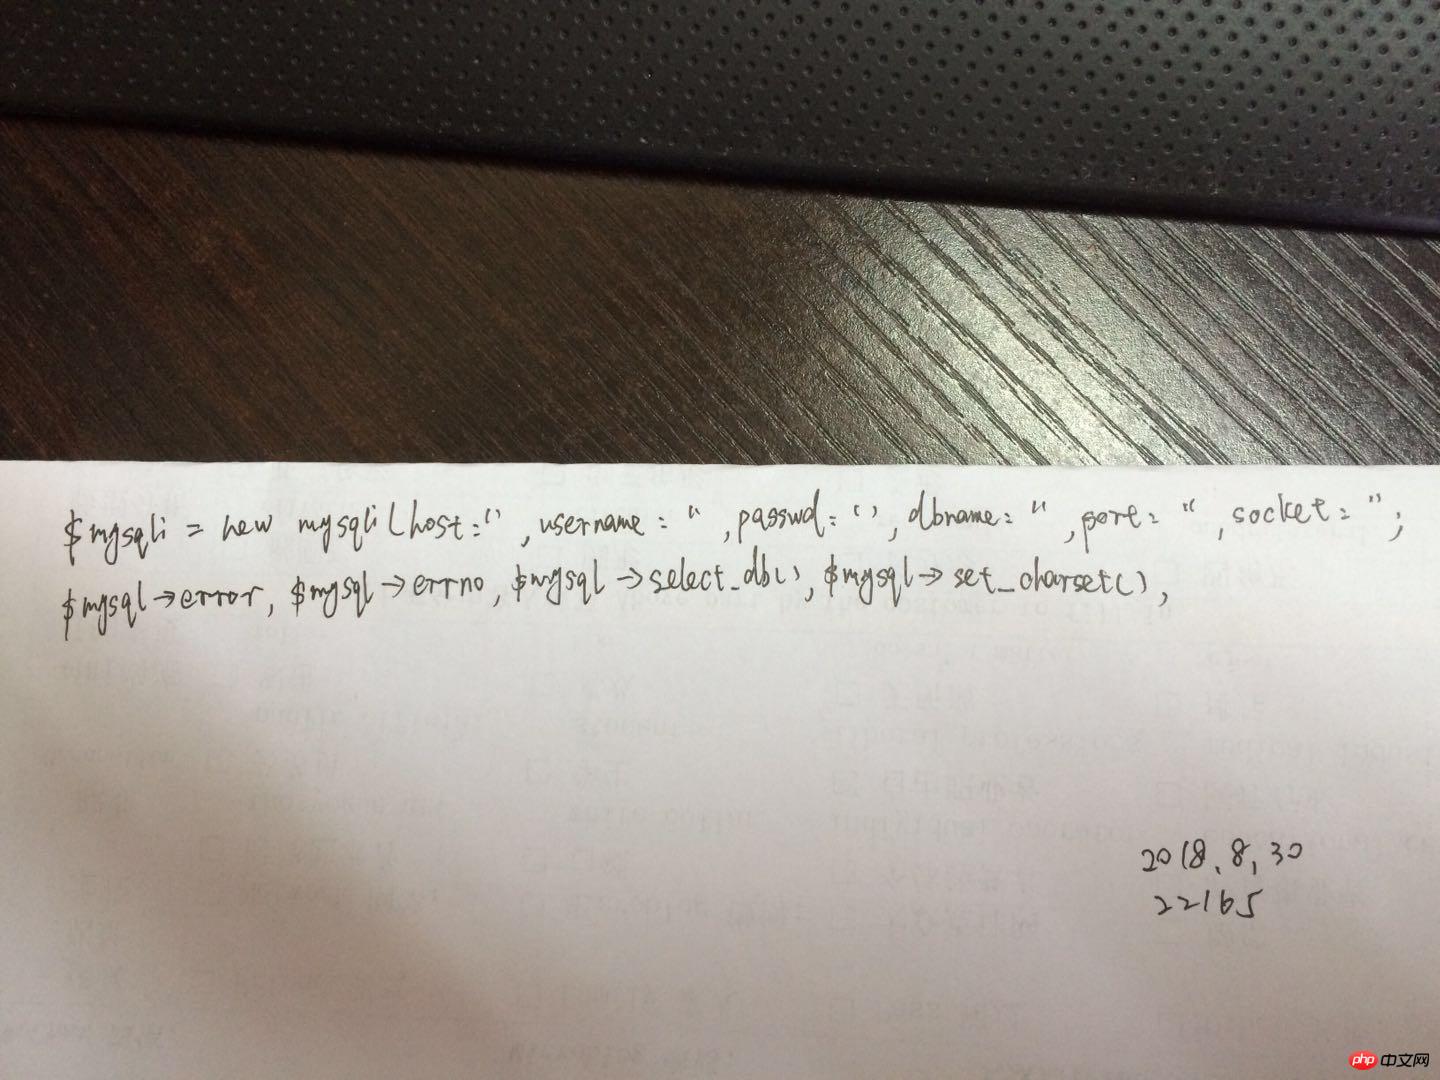 $mysqli = new mysqli(host='', username='', passwd='', dbname='', port='', socket='';
$mysql→error, $mysql→errno, $mysql→select_db(), $mysql→set_charset(),
2018.8.30
22165
php 中文网